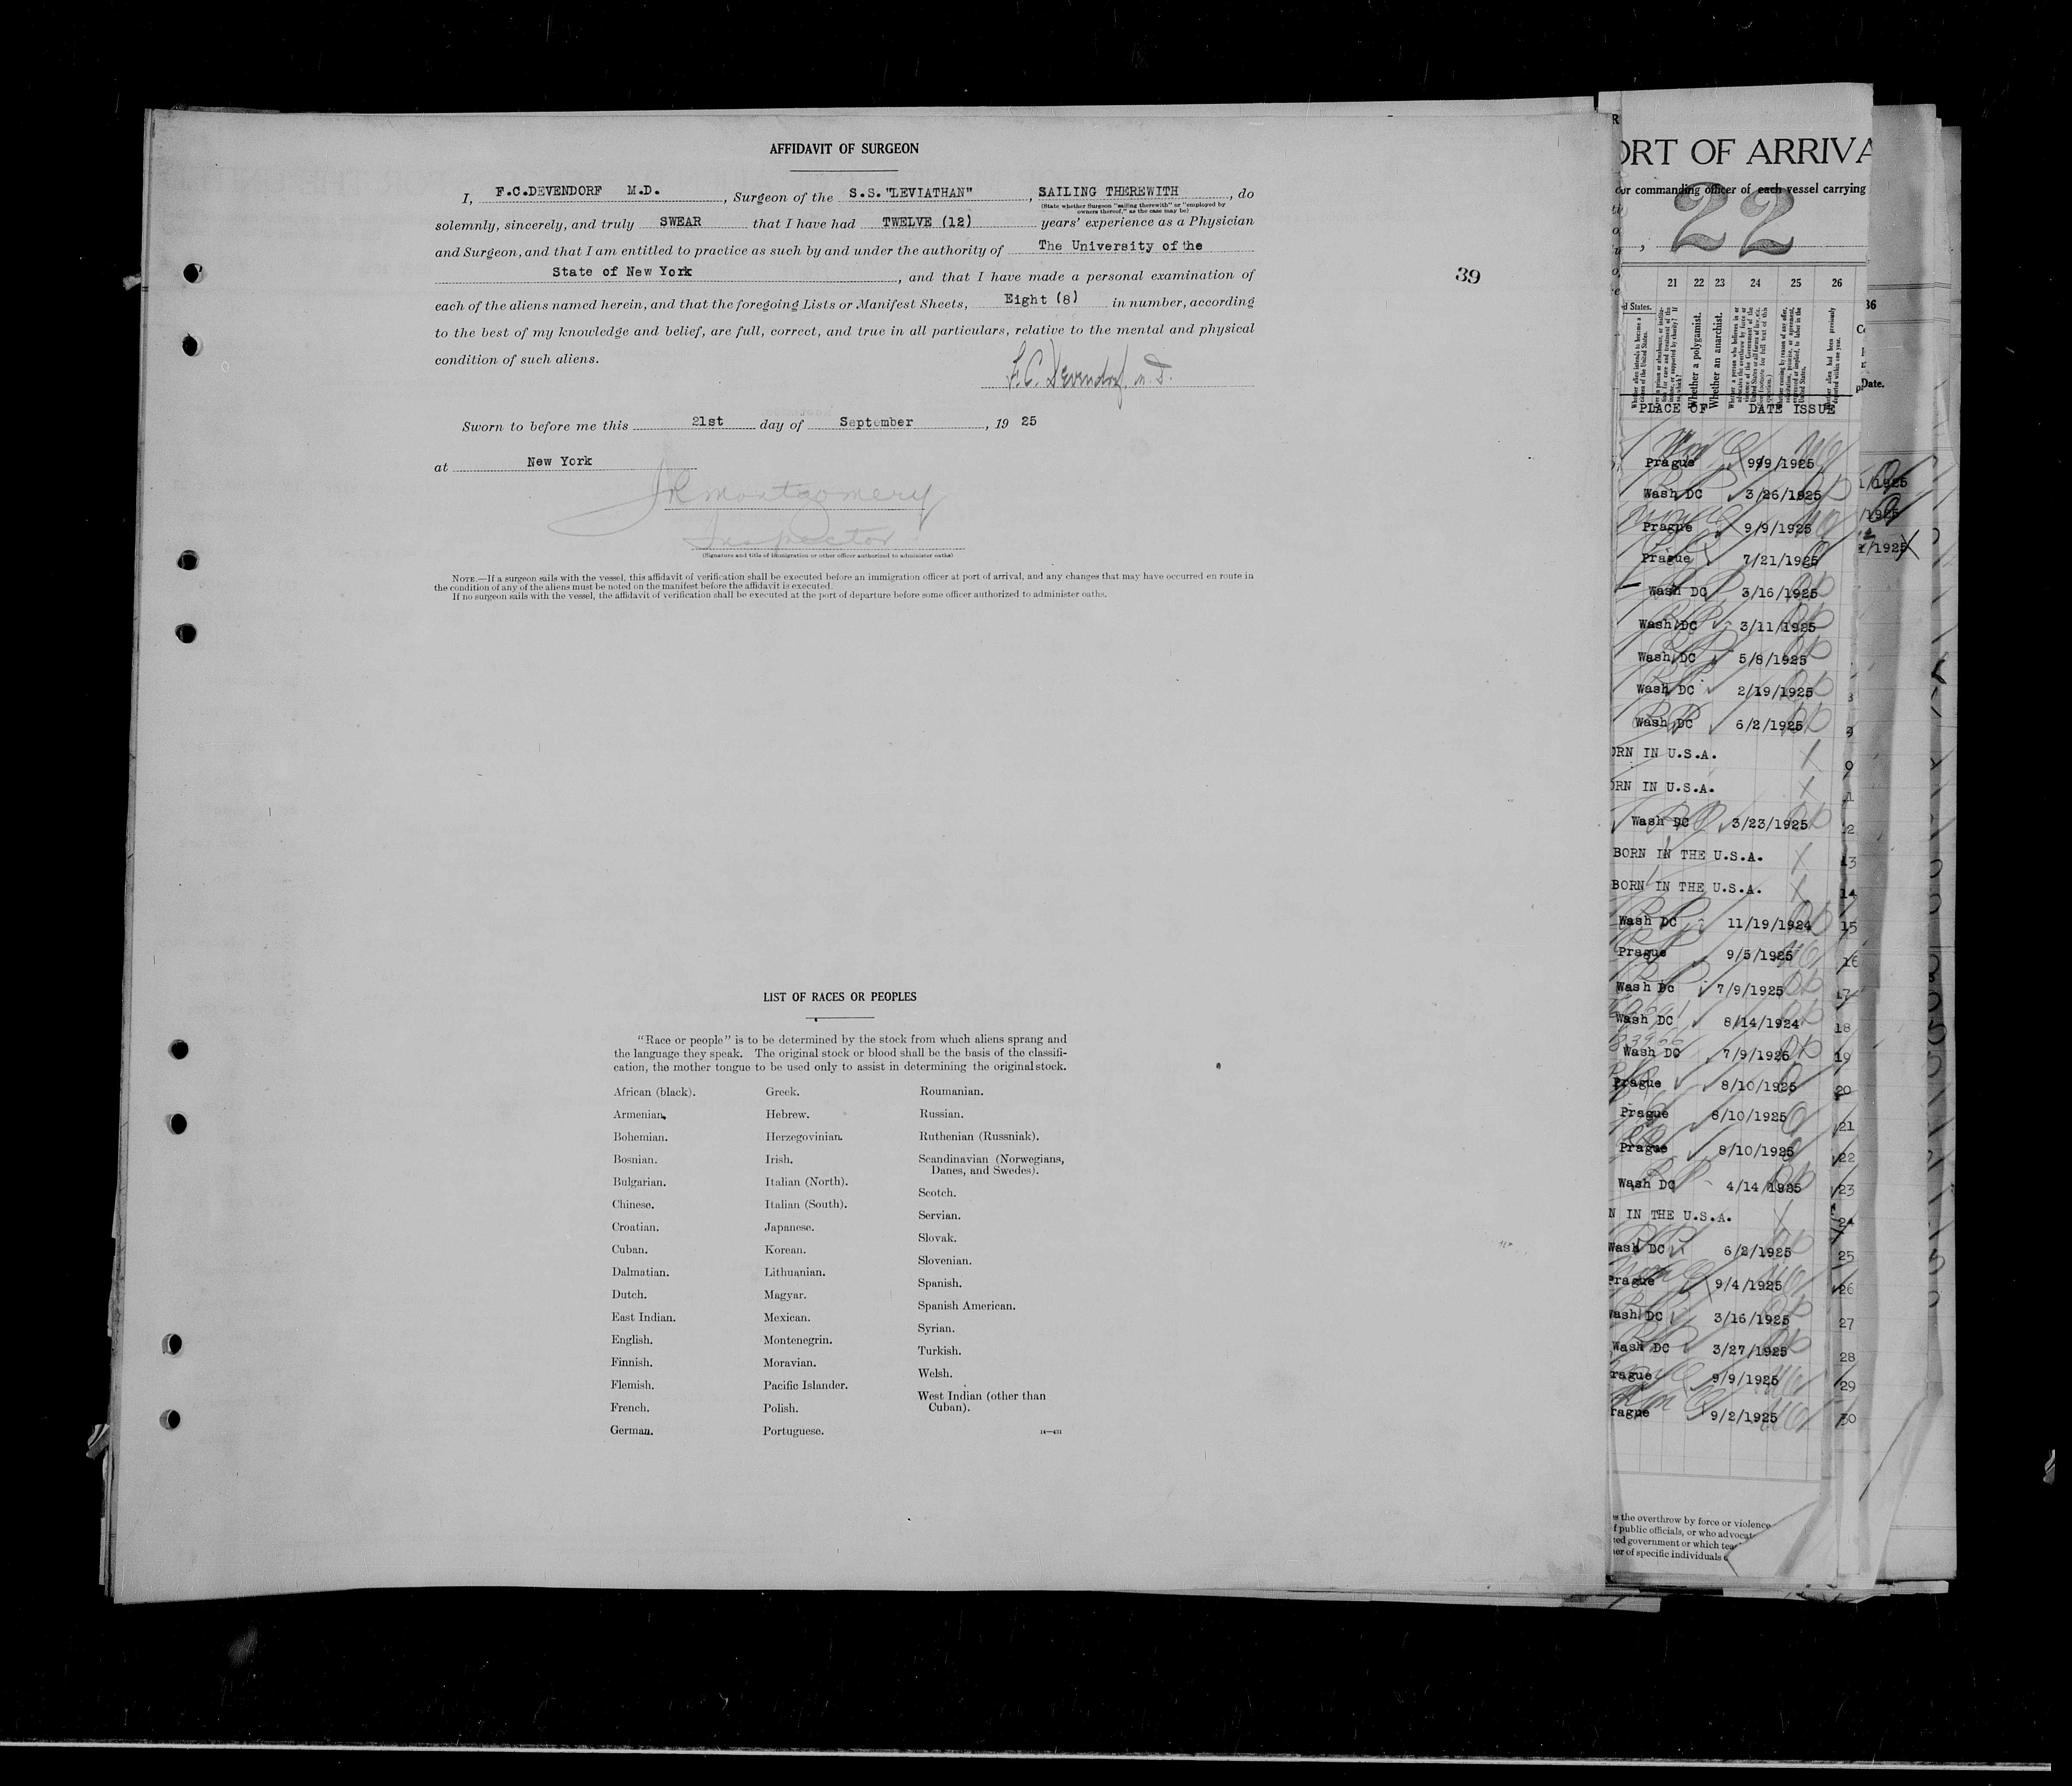 AFFIDAVIT OF SURGEON
I, F.C.DEVENDORF M.D., Surgeon of the S.S."LEVIATHAN", SAILING THEREWITH, do
(State whether Surgeon "sailing therewith" or "employed by
owners thereof," as the case may be)
solemnly, sincerely, and truly SWEAR that I have had TWELVE (12) years' experience as a Physician
and Surgeon, and that I am entitled to practice as such by and under the authority of The University of the
State of New York, and that I have made a personal examination of
each of the aliens named herein, and that the foregoing Lists or Manifest Sheets, Eight (8) in number, according
to the best of my knowledge and belief, are full, correct, and true in all particulars, relative to the mental and physical
condition of such aliens.
F.C. Devendorf M.D.
Sworn to before me this 21st day of September, 1925
at New York
JR Montgomery
Inspector
(Signature and title of immigration or other officer authorized to administer oaths)
NOTE.—If a surgeon sails with the vessel, this affidavit of verification shall be executed before an immigration officer at port of arrival, and any changes that may have occurred en route in
the condition of any of the aliens must be noted on the manifest before the affidavit is executed.
If no surgeon sails with the vessel, the affidavit of verification shall be executed at the port of departure before some officer authorized to administer oaths.
39
LIST OF RACES OR PEOPLES
"Race or people" is to be determined by the stock from which aliens sprang and
the language they speak. The original stock or blood shall be the basis of the classifi-
cation, the mother tongue to be used only to assist in determining the original stock.
African (black).
Armenian.
Bohemian.
Bosnian.
Bulgarian.
Chinese.
Croatian.
Cuban.
Dalmatian.
Dutch.
East Indian.
English.
Finnish.
Flemish.
French.
German.
Greek.
Hebrew.
Herzegovinian.
Irish.
Italian (North).
Italian (South).
Japanese.
Korean.
Lithuanian.
Magyar.
Mexican.
Montenegrin.
Moravian.
Pacific Islander.
Polish.
Portuguese.
Roumanian.
Russian.
Ruthenian (Russniak).
Scandinavian (Norwegians,
Danes, and Swedes).
Scotch.
Servian.
Slovak.
Slovenian.
Spanish.
Spanish American.
Syrian.
Turkish.
Welsh.
West Indian (other than
Cuban).
14—431
ORT OF ARRIVA
or commanding officer of each vessel carrying
22
21 22 23 24 25 26
d States.
Whether a polygamist.
Whether an anarchist.
PLACE OF DATE ISSUE
Prague 9/9/1925
Wash DC 3/26/1925
Prague 9/9/1925
Prague 7/21/1925
Wash DC 3/16/1925
Wash DC 3/11/1925
Wash DC 5/8/1925
Wash DC 2/19/1925
Wash DC 6/2/1925
ORN IN U.S.A.
ORN IN U.S.A.
Wash DC 3/23/1925
BORN IN THE U.S.A. 13
BORN IN THE U.S.A. 14
Wash DC 11/19/1924 15
Prague 9/5/1925 16
Wash Dc 7/9/1925 17
Wash DC 8/14/1924 18
Wash DC 7/9/1925 19
Prague 8/10/1925 20
Prague 8/10/1925 21
Prague 8/10/1925 22
Wash DC 4/14/1925 23
N IN THE U.S.A. 24
Wash DC 6/2/1925 25
Prague 9/4/1925 26
Wash DC 3/16/1925 27
Wash DC 3/27/1925 28
rague 9/9/1925 29
rague 9/2/1925 30
s the overthrow by force or violence
f public officials, or who advocat
ed government or which tea
er of specific individuals
36
Date.
1/1925
/1925
1/1925